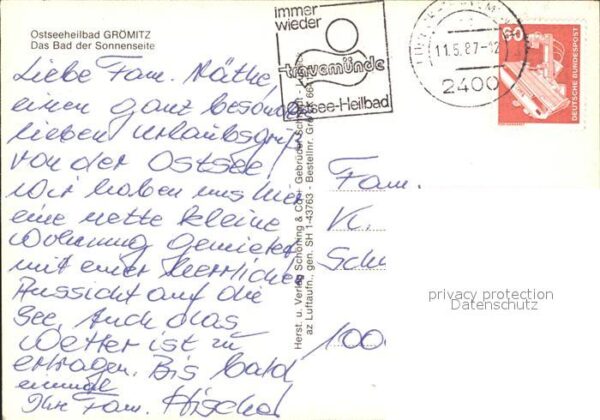 Ostseeheilbad GRÖMITZ
Das Bad der Sonnenseite
immer
wieder
travemünde
Ostsee-Heilbad
11.5.87-12
2400
60
DEUTSCHE BUNDESPOST
Liebe Fam. Näthe,
einen ganz besonders
lieben Urlaubsgruß
von der Ostsee!
Wir haben uns hier
eine nette kleine
Wohnung gemietet
mit einer herrlichen
Aussicht auf die
See. Auch das
Wetter ist zu
ertragen. Bis bald
einmal
Ihre Fam.
Herst. u. Verlag Schöning & Co + Gebrüder Schmidt
az Luftaufn., gen. SH 1-43763 - Bestellnr.
Fam.
K.
Sch
1000
privacy protection
Datenschutz